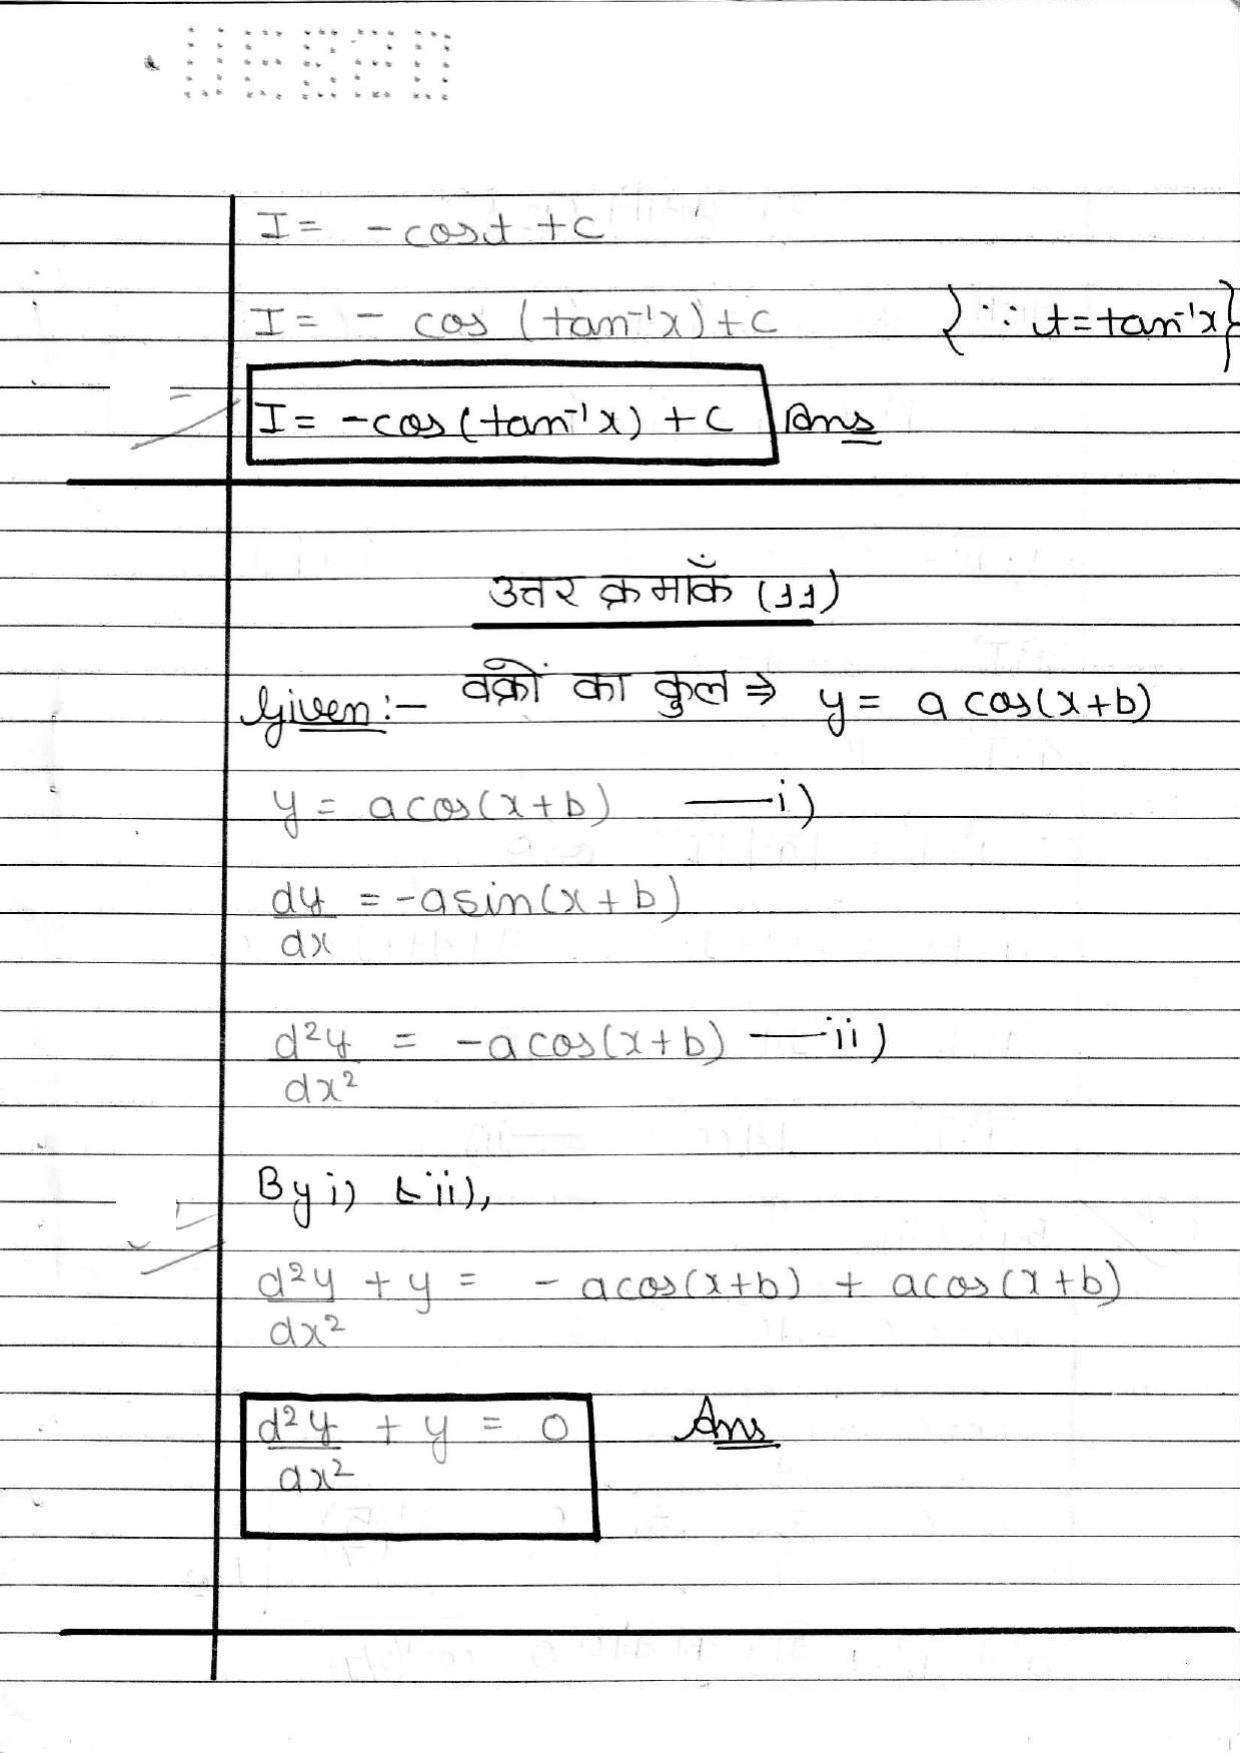 I = -cost + c
I = - cos (tan⁻¹x) + c { ∵ t = tan⁻¹x }
I = -cos (tan⁻¹x) + c Ans
उत्तर क्रमांकँ (11)
Given :- वक्रों का कुल ⇒ y = a cos(x+b)
y = a cos(x+b) —— i)
dy/dx = -a sin(x+b)
d²y/dx² = -a cos(x+b) —— ii)
By i) & ii),
d²y/dx² + y = - a cos(x+b) + a cos(x+b)
d²y/dx² + y = 0 Ans